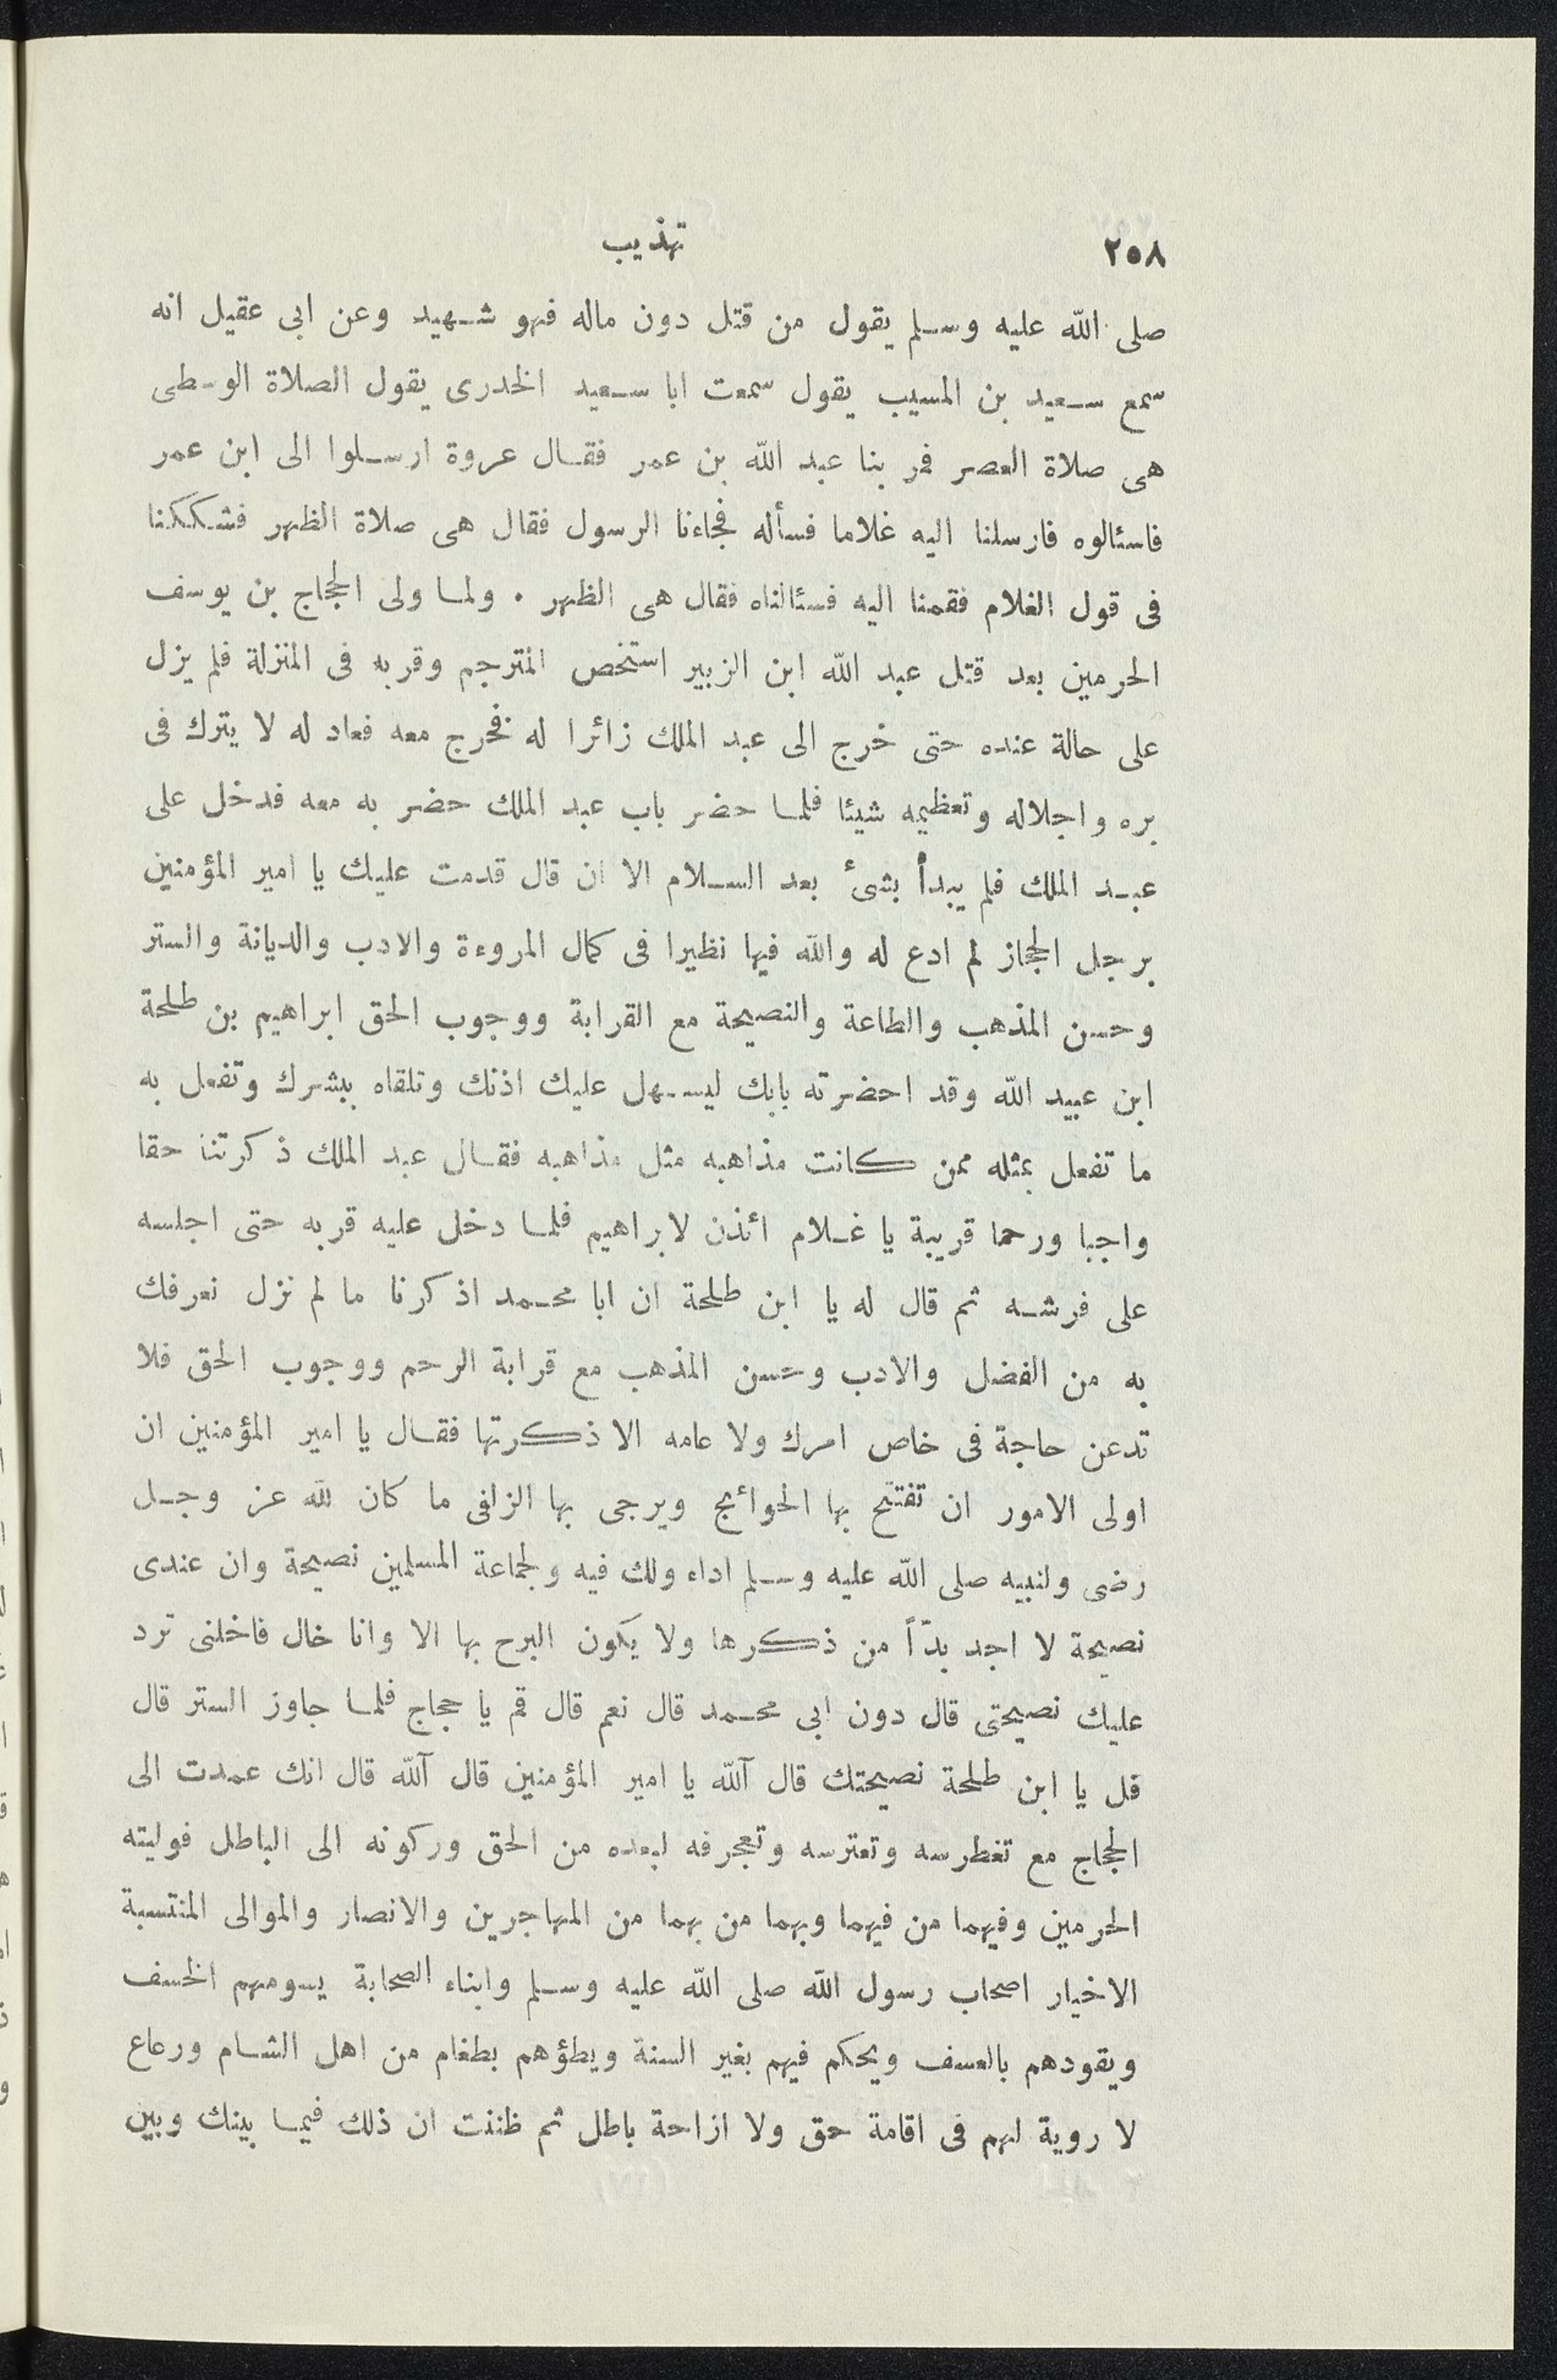 ٢٥٨
تهذيب
صلى الله عليه وسلم يقول من قتل دون ماله فهو شهيد وعن ابى عقيل انه
سمع سعيد بن المسيب يقول سمعت ابا سعيد الخدرى يقول الصلاة الوسطى
هى صلاة العصر فمر بنا عبد الله بن عمر فقال عروة ارسلوا الى ابن عمر
فاسئالوه فارسلنا اليه غلاما فسأله فجاءنا الرسول فقال هى صلاة الظهر فشككنا
فى قول الغلام فقمنا اليه فسئالناه فقال هى الظهر . ولما ولى الحجاج بن يوسف
الحرمين بعد قتل عبد الله ابن الزبير استخص المترجم وقربه فى المنزلة فلم يزل
على حالة عنده حتى خرج الى عبد الملك زائرا له فخرج معه فعاد له لا يترك فى
بره واجلاله وتعظيمه شيئا فلما حضر باب عبد الملك حضر به معه فدخل على
عبد الملك فلم يبدأ بشئ بعد السلام الا ان قال قدمت عليك يا امير المؤمنين
برجل الحجاز لم ادع له والله فيها نظيرا فى كمال المروءة والادب والديانة والستر
وحسن المذهب والطاعة والنصيحة مع القرابة ووجوب الحق ابراهيم بن طلحة
ابن عبيد الله وقد احضرته بابك ليسهل عليك اذنك وتلقاه ببشرك وتفعل به
ما تفعل بمثله ممن كانت مذاهبه مثل مذاهبه فقال عبد الملك ذكرتنا حقا
واجبا ورحما قريبة يا غلام ائذن لابراهيم فلما دخل عليه قربه حتى اجلسه
على فرشه ثم قال له يا ابن طلحة ان ابا محمد اذكرنا ما لم نزل نعرفك
به من الفضل والادب وحسن المذهب مع قرابة الرحم ووجوب الحق فلا
تدعن حاجة فى خاص امرك ولا عامه الا ذكرتها فقال يا امير المؤمنين ان
اولى الامور ان تفتتح بها الحوائج ويرجى بها الزلفى ما كان لله عز وجل
رضى ولنبيه صلى الله عليه وسلم اداء ولك فيه ولجماعة المسلمين نصيحة وان عندى
نصيحة لا اجد بدّاً من ذكرها ولا يكون البرح بها الا وانا خال فاخلنى ترد
عليك نصيحتى قال دون ابى محمد قال نعم قال قم يا حجاج فلما جاوز الستر قال
قل يا ابن طلحة نصيحتك قال آلله يا امير المؤمنين قال آلله قال انك عمدت الى
الحجاج مع تغطرسه وتعترسه وتعجرفه لبعده من الحق وركونه الى الباطل فوليته
الحرمين وفيهما من فيهما وبهما من بهما من المهاجرين والانصار والموالى المنتسبة
الاخيار اصحاب رسول الله صلى الله عليه وسلم وابناء الصحابة يسومهم الخسف
ويقودهم بالعسف ويحكم فيهم بغير السنة ويطؤهم بطغام من اهل الشام ورعاع
لا روية لهم فى اقامة حق ولا ازاحة باطل ثم ظننت ان ذلك فيما بينك وبين